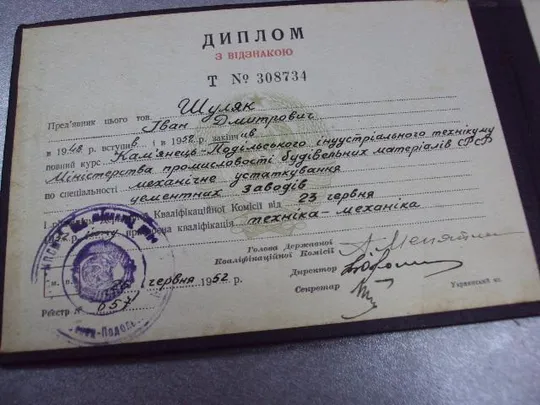 ДИПЛОМ
З ВІДЗНАКОЮ
Т № 308734
Пред'явник цього тов. Шуляк
Іван Дмитрович
в 1948 р. вступив і в 1952 р. закінчив
повний курс Кам'янець-Подільського індустріального технікуму
Міністерства промисловості будівельних матеріалів СРСР
по спеціальності механічне устаткування
цементних заводів
І Кваліфікаційної Комісії від 23 червня
кваліфікація техніка-механіка
Голова Державної
Кваліфікаційної Комісії
Директор
Секретар
червня 1952 р.
Реєстр №
Український